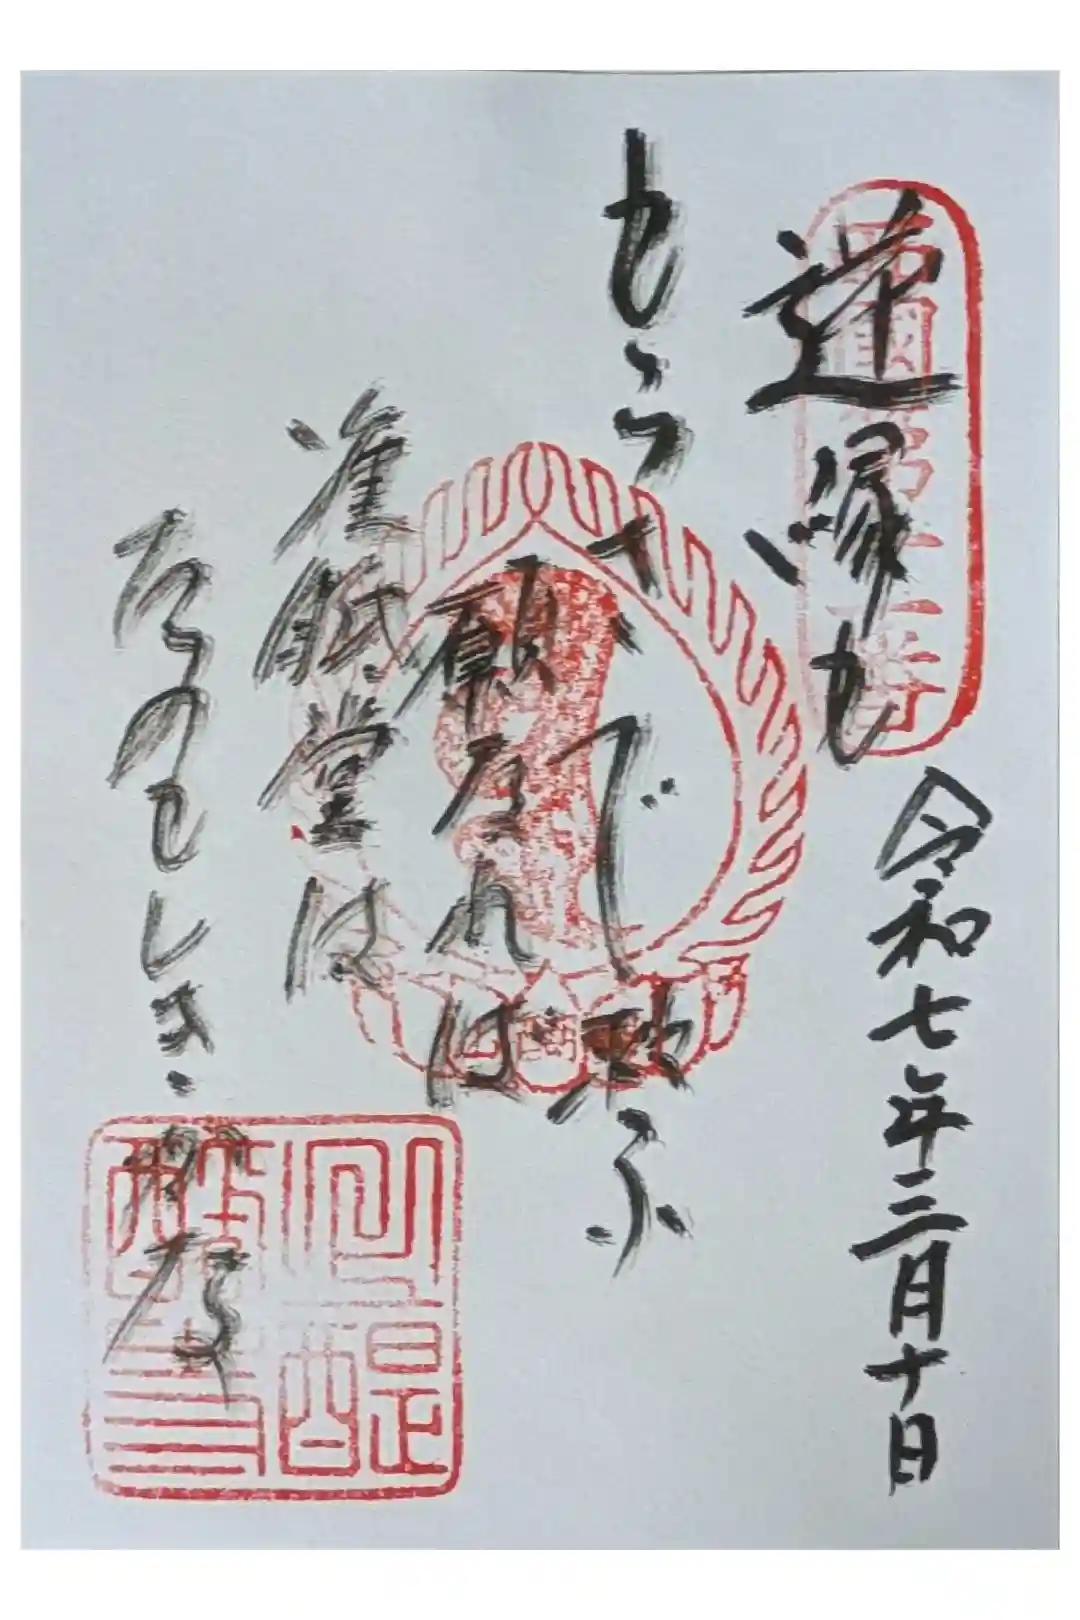 西國第十一番
逆縁も
令和七年三月十日
もらさで救ふ
願なれば
准胝堂は
たのもしきかな